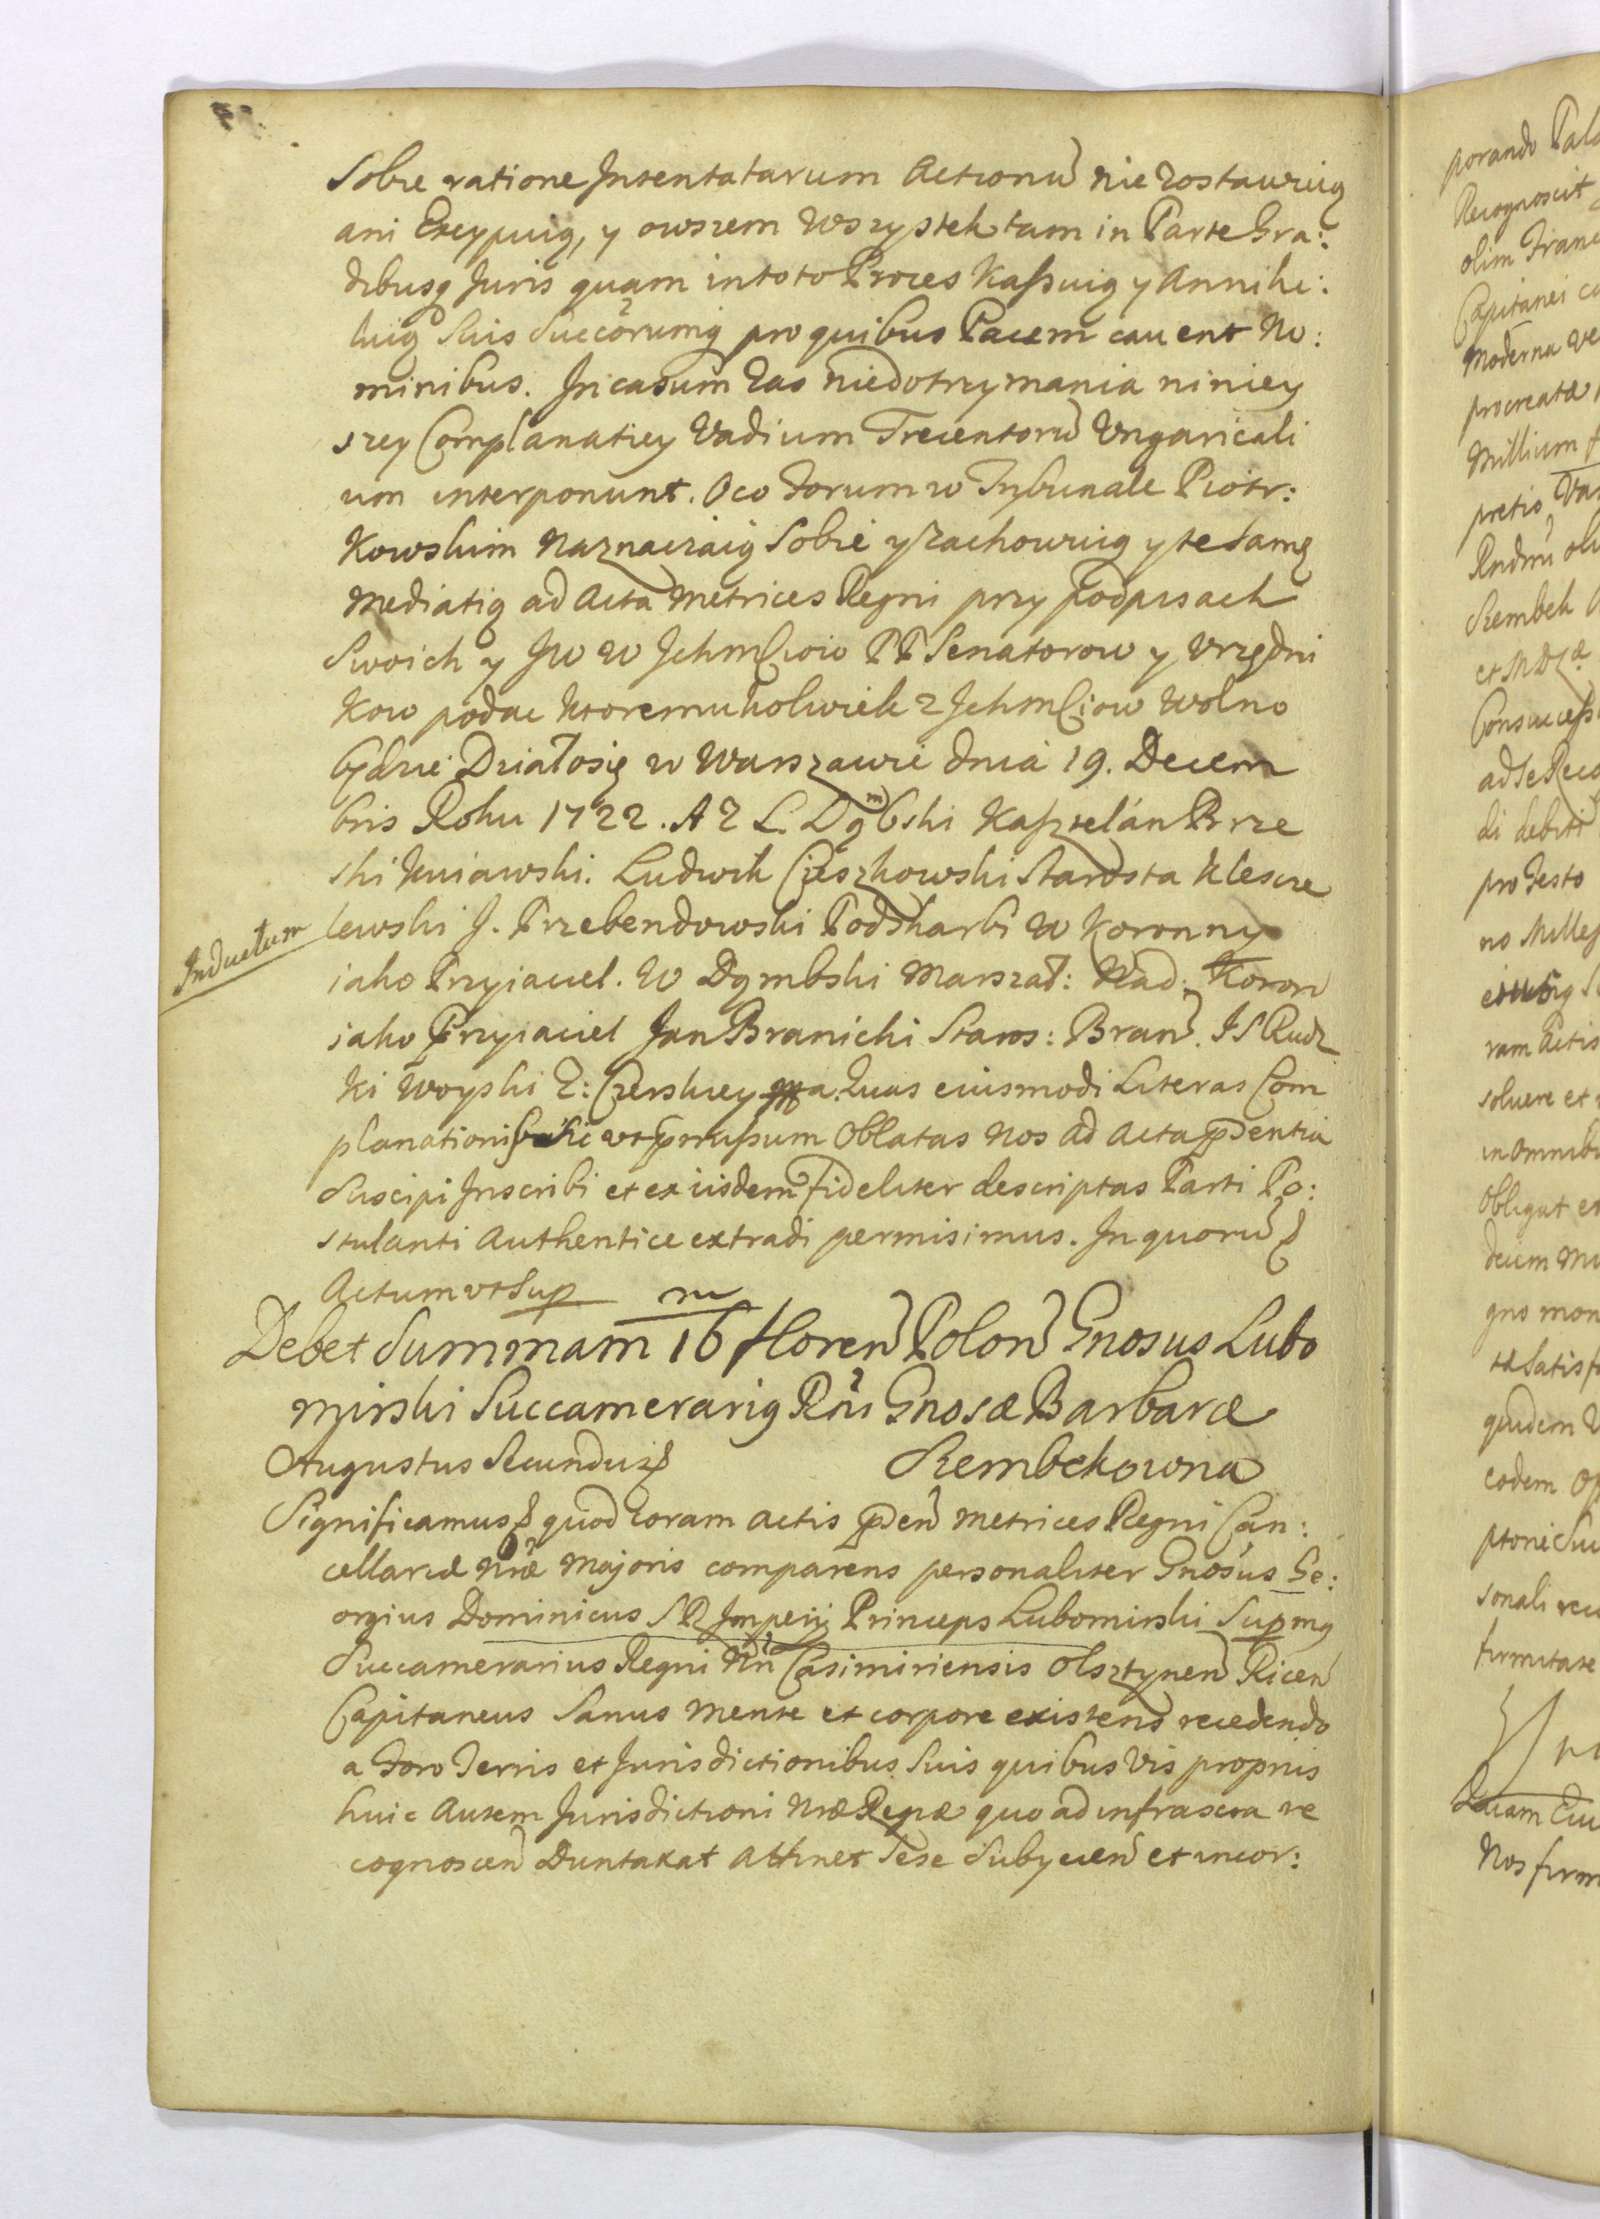 Sobie ratione Intentatarum Actionũ nie zostawuią
ani Excypuią, y owszem wszystek tam in Parte Gra:
dibusq Juris quam in toto Proces Kassuią y Annihi:
luią Suis Succorumq pro quibus Pacem cauent No:
minibus. In casum zas niedotrzymania niniey
szey Complanatiey Vadium Trecentorũ Vngaricali
um interponunt. O co Forum w Trybunale Piotr:
Kowskim Naznaczaią Sobie y Zachowuią y te Samę
Mediatią ad Acta Metrices Regni przy podpisach
Swoich y JW W Jchmściow PP Senatorow y Vrzędni
Kow podac ktoremukolwiek z Jchmściow Wolno
będzie Działosię w Warszawie dnia 19. Decem
bris Roku 1722. A Z L. Dąmbski Kasztelan Brze
ski Kuiawski. Ludwik Cieszkowski Starosta Kleszcze
lewski J. Przebendowski Podskarbi W Koronny
iako Przyiaciel. W Dąmbski Marszał: Nad: Koron
iako Przyiaciel Jan Branicki Staros: Bran. J S Rudz
Ki Woyski Z: Czerskiey mą. Quas eiusmodi Literas Com
planationis vt prmissum Oblatas Nos ad Acta pdentia
Suscipi Inscribi et ex iisdem fideliter descriptas Parti Po:
stulanti Authentice extradi permisimus. In quorũ
Actum vt Sup
Inductum
m
Debet Summam 16 floren Polon Gnosus Lubo
mirski Succamerariq Rni Gnosæ Barbaræ
Augustus Secundus
Szembekowna
Significamus quod coram Actis pden Metrices Regni Can:
cellariæ Nræ Majoris comparens personaliter Gnosus Ge:
orgius Dominicus S R Imperij Princeps Lubomirski Supmq
Succamerarius Regni Nri Casimiriensis Olsztynen Ricen
Capitaneus Sanus Mente et corpore existens recedendo
a Foro Terris et Jurisdictionibus Suis quibus Vis proprijs
huic Autem Jurisdictioni Nræ Regiæ quo ad infrascra re
cognoscen Duntaxat Attinet Sese Subycien et incor:
porando
Recognoscit
olim Franc
Capitanei
Moderna
procreatæ
Millium
pretio
Szembek
ad Se
di debiti
pro Festo
no Mille
ram Actis
soluere et
in omnibu
Obligat
decem
gno mon
quidem
eodem
sonali
firmitate
Nos firm